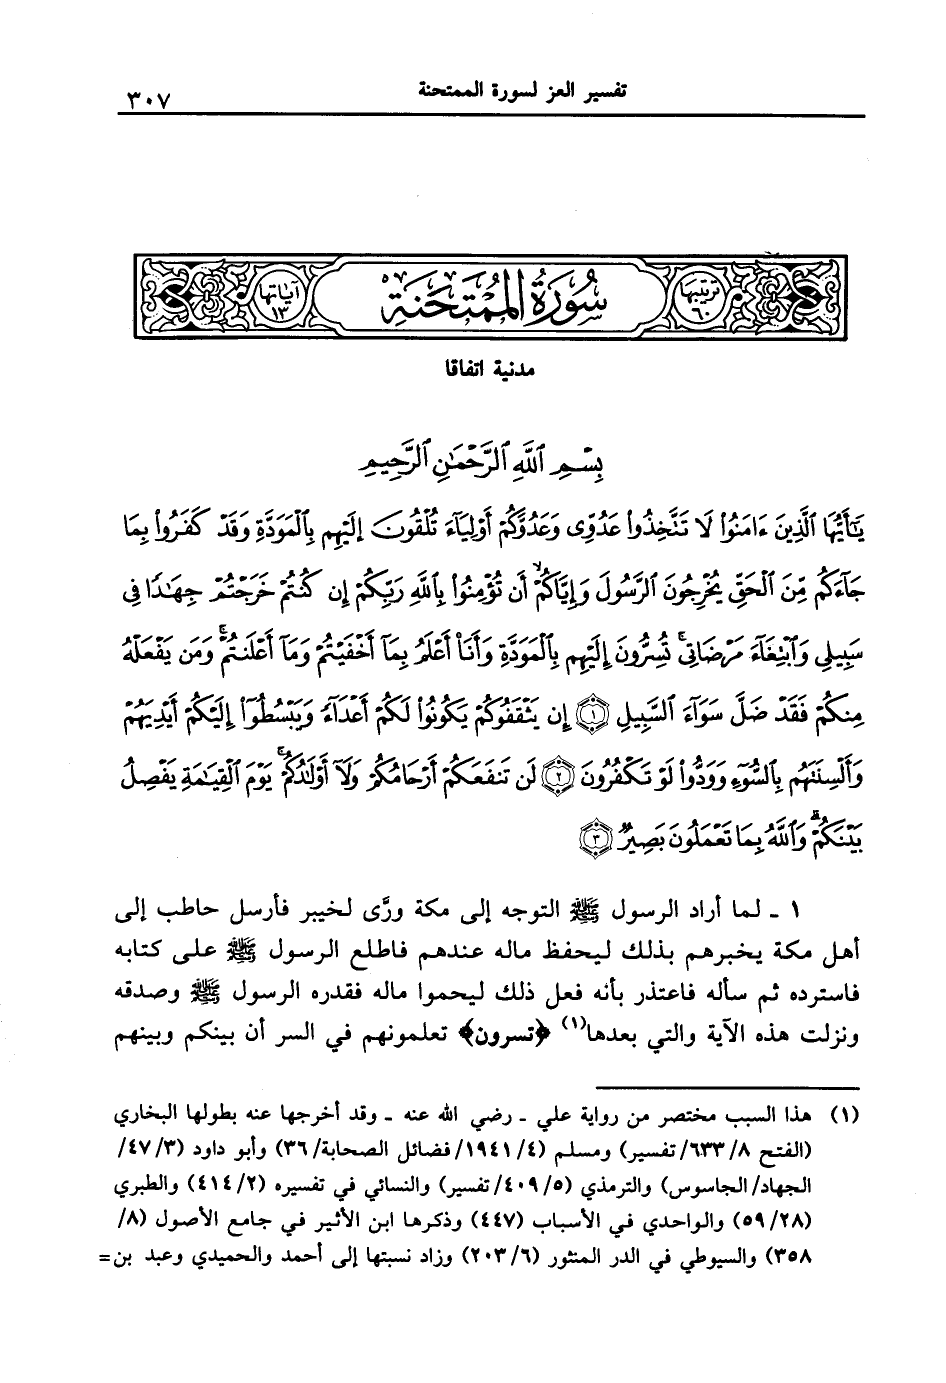 تفسير العز لسورة الممتحنة ٣٠٧
ترتيبها ٦٠ سُورَةُ المُمْتَحنَةِ آياتها ١٣
مدنية اتفاقا
بِسْمِ ٱللَّهِ ٱلرَّحْمَٰنِ ٱلرَّحِيمِ
يَٰٓأَيُّهَا ٱلَّذِينَ ءَامَنُوا۟ لَا تَتَّخِذُوا۟ عَدُوِّى وَعَدُوَّكُمْ أَوْلِيَآءَ تُلْقُونَ إِلَيْهِم بِٱلْمَوَدَّةِ وَقَدْ كَفَرُوا۟ بِمَا
جَآءَكُم مِّنَ ٱلْحَقِّ يُخْرِجُونَ ٱلرَّسُولَ وَإِيَّاكُمْ ۙ أَن تُؤْمِنُوا۟ بِٱللَّهِ رَبِّكُمْ إِن كُنتُمْ خَرَجْتُمْ جِهَٰدًا فِى
سَبِيلِى وَٱبْتِغَآءَ مَرْضَاتِى ۚ تُسِرُّونَ إِلَيْهِم بِٱلْمَوَدَّةِ وَأَنَا۠ أَعْلَمُ بِمَآ أَخْفَيْتُمْ وَمَآ أَعْلَنتُمْ ۚ وَمَن يَفْعَلْهُ
مِنكُمْ فَقَدْ ضَلَّ سَوَآءَ ٱلسَّبِيلِ ﴿١﴾ إِن يَثْقَفُوكُمْ يَكُونُوا۟ لَكُمْ أَعْدَآءً وَيَبْسُطُوٓا۟ إِلَيْكُمْ أَيْدِيَهُمْ
وَأَلْسِنَتَهُم بِٱلسُّوٓءِ وَوَدُّوا۟ لَوْ تَكْفُرُونَ ﴿٢﴾ لَن تَنفَعَكُمْ أَرْحَامُكُمْ وَلَآ أَوْلَٰدُكُمْ ۚ يَوْمَ ٱلْقِيَٰمَةِ يَفْصِلُ
بَيْنَكُمْ ۚ وَٱللَّهُ بِمَا تَعْمَلُونَ بَصِيرٌ ﴿٣﴾
١ ـ لما أراد الرسول ﷺ التوجه إلى مكة ورَّى لخيبر فأرسل حاطب إلى
أهل مكة يخبرهم بذلك ليحفظ ماله عندهم فاطلع الرسول ﷺ على كتابه
فاسترده ثم سأله فاعتذر بأنه فعل ذلك ليحموا ماله فقدره الرسول ﷺ وصدقه
ونزلت هذه الآية والتي بعدها(١) ﴿تسرون﴾ تعلمونهم في السر أن بينكم وبينهم
(١) هذا السبب مختصر من رواية علي ـ رضي الله عنه ـ وقد أخرجها عنه بطولها البخاري
(الفتح ٦٣٣/٨/تفسير) ومسلم (١٩٤١/٤/فضائل الصحابة/٣٦) وأبو داود (٤٧/٣/
الجهاد/الجاسوس) والترمذي (٤٠٩/٥/تفسير) والنسائي في تفسيره (٤١٤/٢) والطبري
(٥٩/٢٨) والواحدي في الأسباب (٤٤٧) وذكرها ابن الأثير في جامع الأصول (٨/
٣٥٨) والسيوطي في الدر المنثور (٢٠٣/٦) وزاد نسبتها إلى أحمد والحميدي وعبد بن=